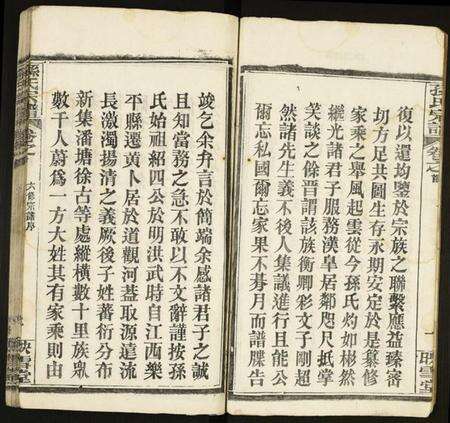 孫氏宗譜 卷之首
映雪堂
復以還均鑒於宗族之聯繫應益臻密
切方足共圖生存永期安定於是纂修
家乘之舉風起雲從今孫氏灼如彬然
繼光諸君子服務漢皐居鄰咫尺抵掌
笑談之餘晋謂該族衡卿彩文子剛超
然諸先生義不後人集議進行且能公
爾忘私國爾忘家果不朞月而譜牒告
竣乞余弁言於簡端余感諸君子之誠
且知當務之急不敢以不文辭謹按孫
氏始祖紹四公於明洪武時自江西樂
平縣遷黃卜居於道觀河葢取源遠流
長激濁揚清之義厥後子姓蕃衍分布
新集潘塘徐古等處縱橫數十里族眾
數千人蔚爲一方大姓其有家乘則由
孫氏宗譜
六修宗譜序
映雪堂